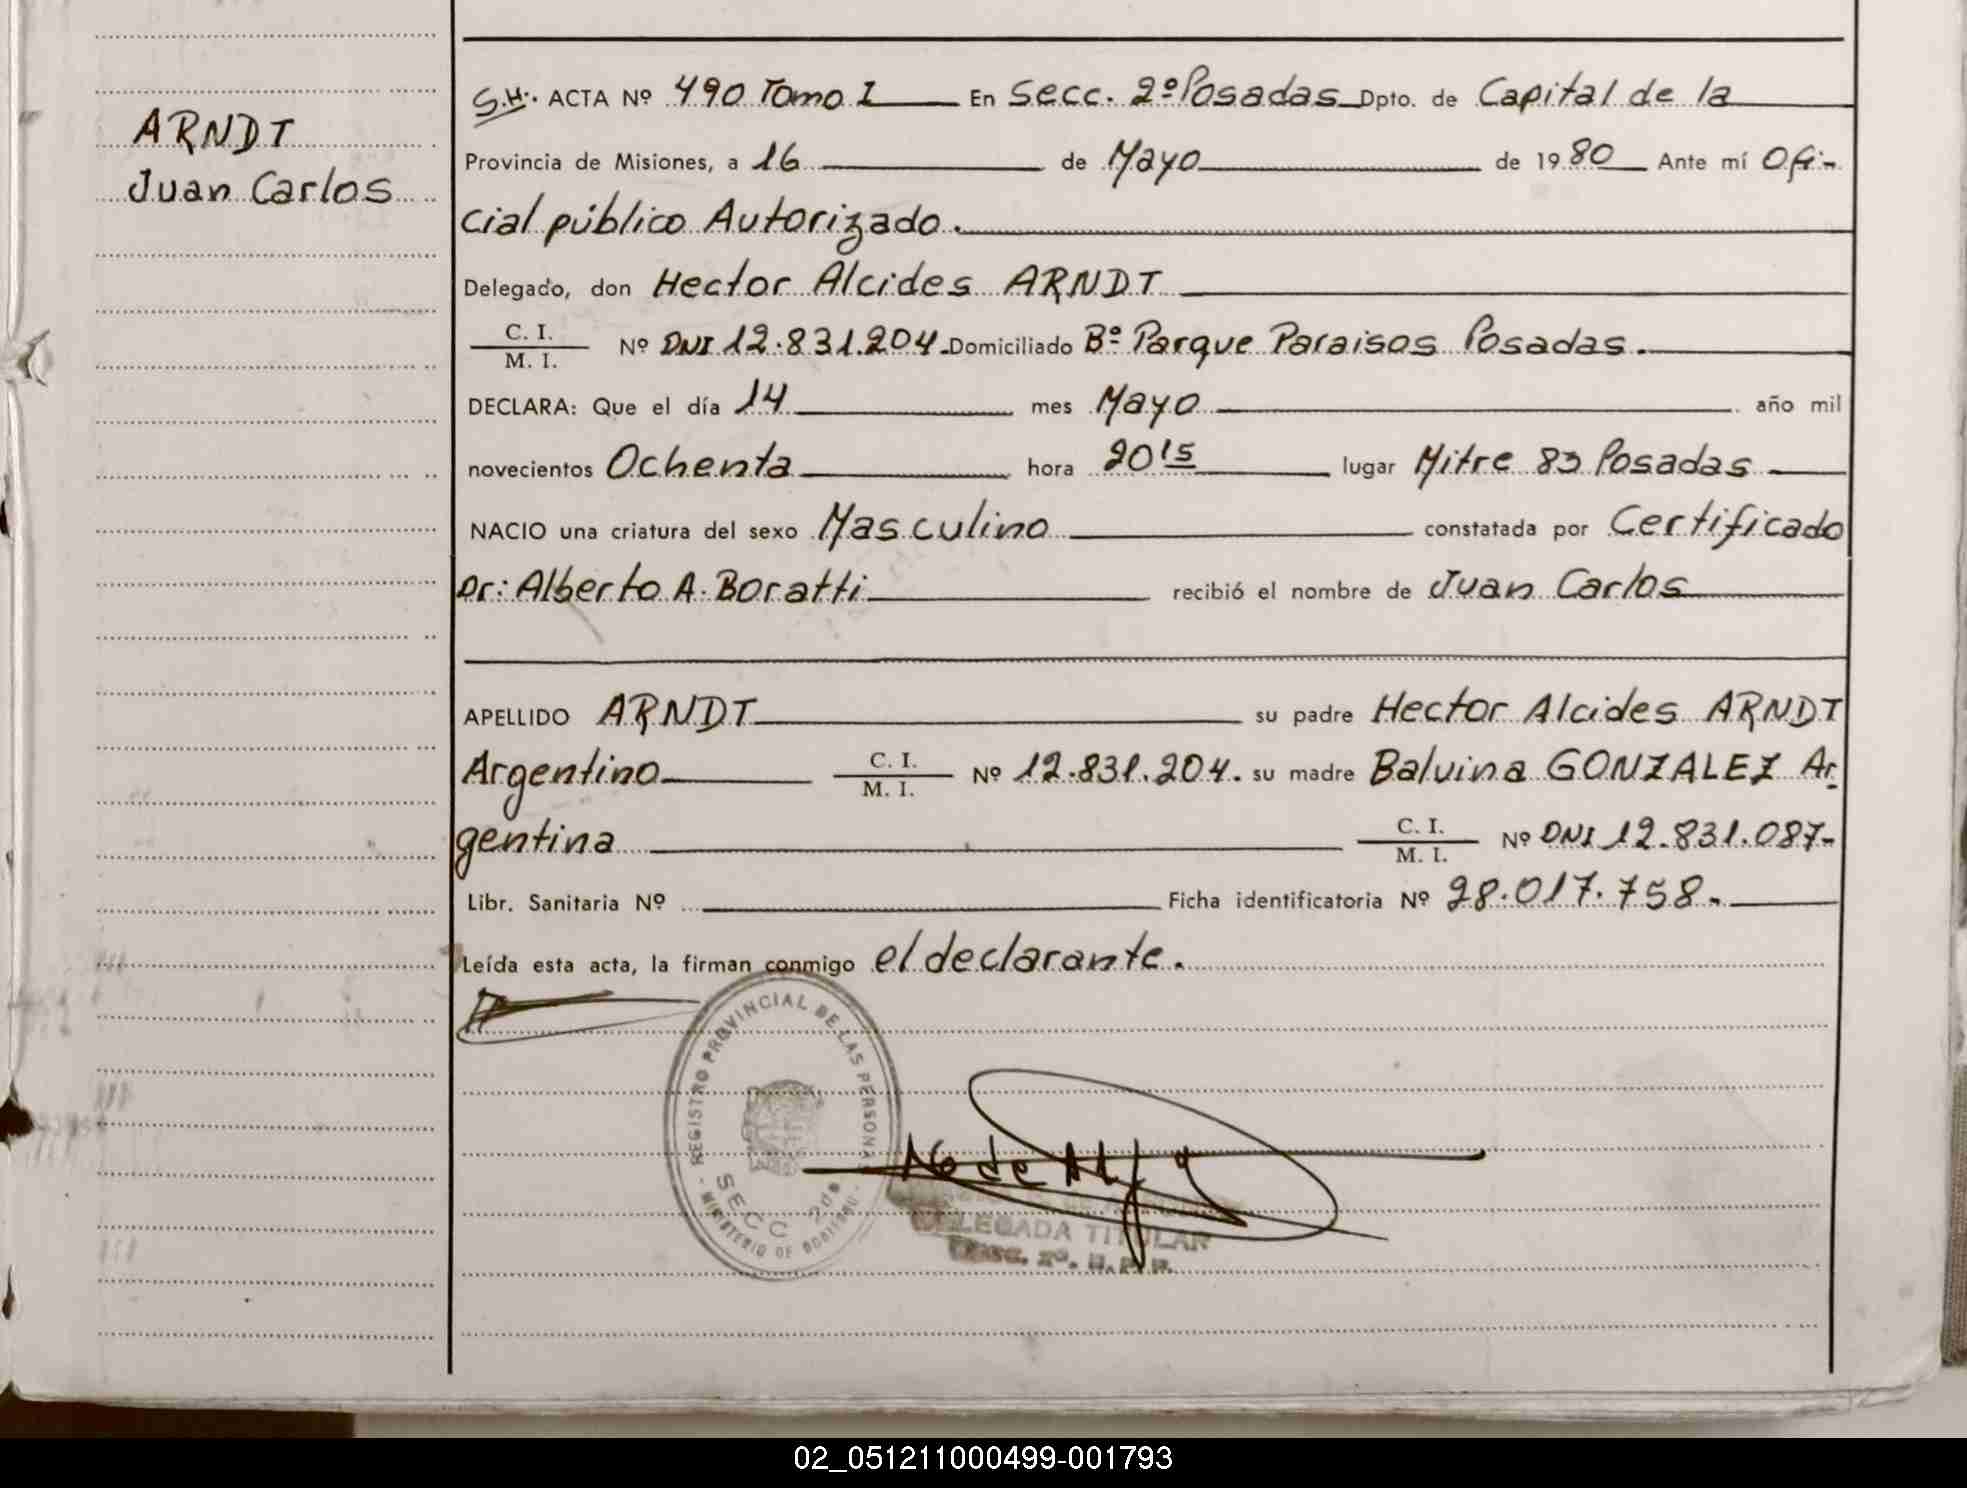 ARNDT
Juan Carlos
S.H. ACTA Nº 490 Tomo I En Secc. 2º Posadas Dpto. de Capital de la
Provincia de Misiones, a 16 de Mayo de 1980 Ante mí Ofi-
cial público Autorizado.
Delegado, don Hector Alcides ARNDT
C. I.
M. I. Nº DNI 12.831.204. Domiciliado Bº Parque Paraisos Posadas.
DECLARA: Que el día 14 mes Mayo año mil
novecientos Ochenta hora 20 15 lugar Mitre 83 Posadas
NACIO una criatura del sexo Masculino constatada por Certificado
Dr: Alberto A. Boratti recibió el nombre de Juan Carlos
APELLIDO ARNDT su padre Hector Alcides ARNDT
Argentino C. I.
M. I. Nº 12.831.204. su madre Balvina GONZALEZ Ar
gentina C. I.
M. I. Nº DNI 12.831.087-
Libr. Sanitaria Nº Ficha identificatoria Nº 28.017.758.-
Leída esta acta, la firman conmigo el declarante.
REGISTRO PROVINCIAL DE LAS PERSONAS
SECC 2da
MINISTERIO DE GOBIERNO
DELEGADA TITULAR
02_051211000499-001793